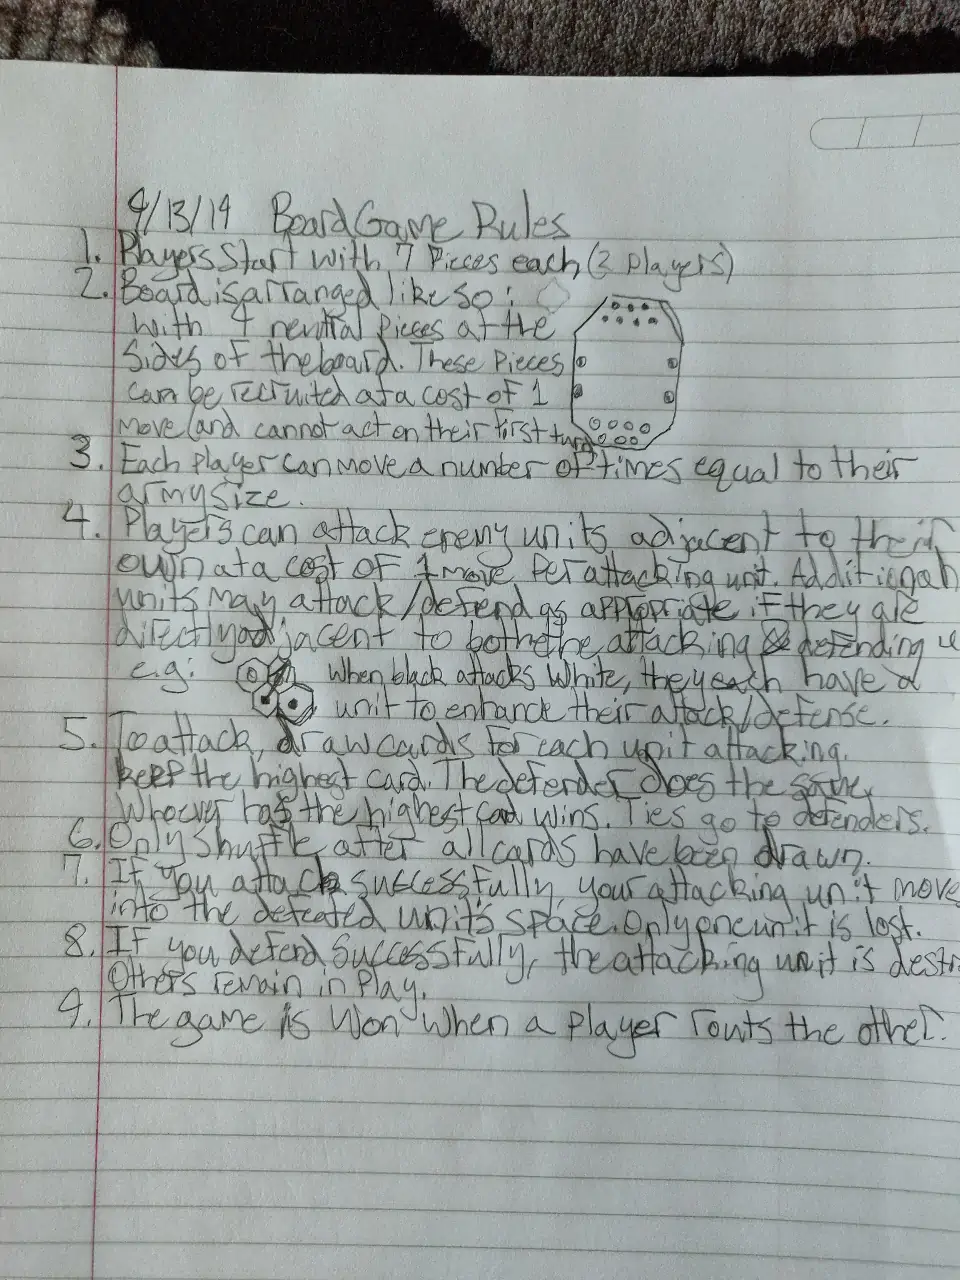 9/13/19 Board Game Rules
1. Players start with 7 Pieces each (2 players)
2. Board is arranged like so:
with 4 neutral pieces at the
sides of the board. These Pieces
can be recruited at a cost of 1
move (and cannot act on their first turn)
3. Each player can move a number of times equal to their
army size.
4. Players can attack enemy units adjacent to their
own at a cost of 1 move Per attacking unit. Additional
units may attack/defend as appropriate if they are
directly adjacent to both the attacking & defending u
e.g: When black attacks White, they each have a
unit to enhance their attack/defense.
5. To attack, draw cards for each unit attacking.
keep the highest card. The defender does the same,
Whoever has the highest card wins. Ties go to defenders.
6. Only shuffle after all cards have been drawn.
7. If you attack successfully, your attacking unit move
into the defeated unit's space. Only one unit is lost.
8. If you defend successfully, the attacking unit is destr
Others remain in Play.
9. The game is won when a player routs the other.